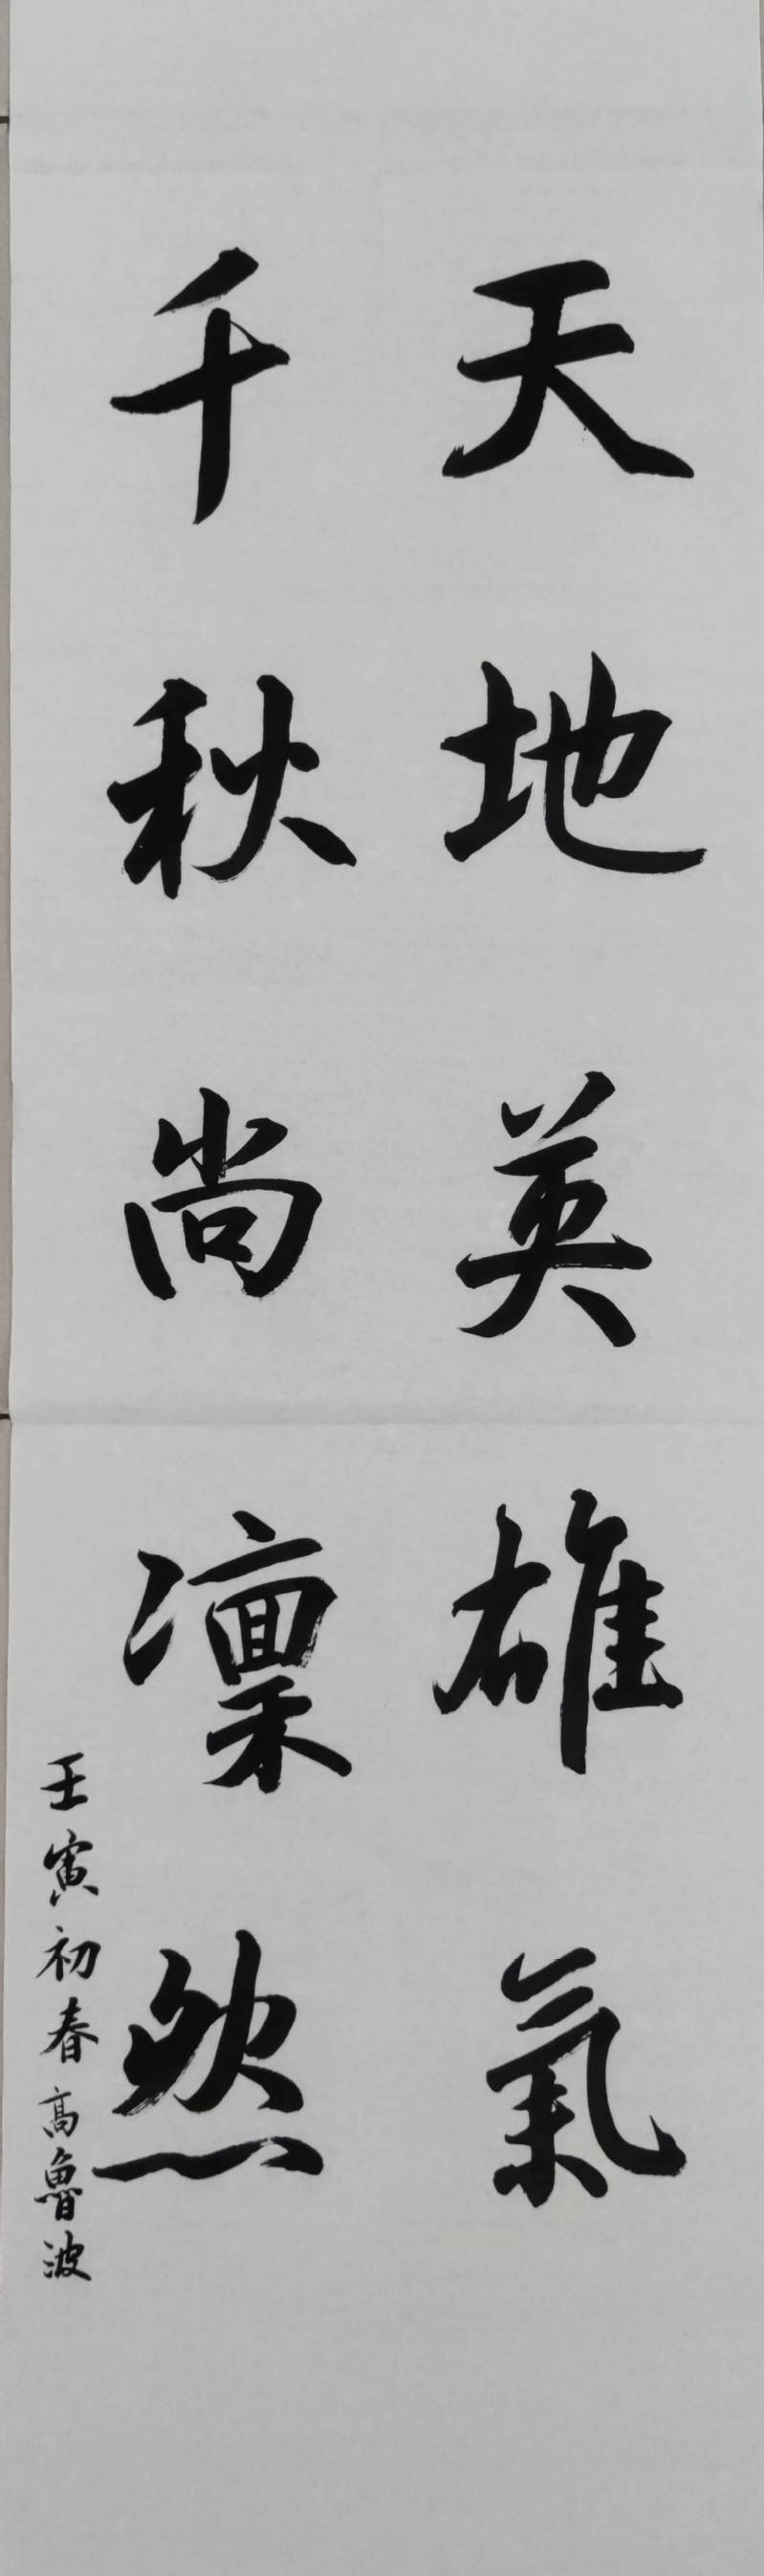 天地英雄氣
千秋尚凜然
壬寅初春高魯波